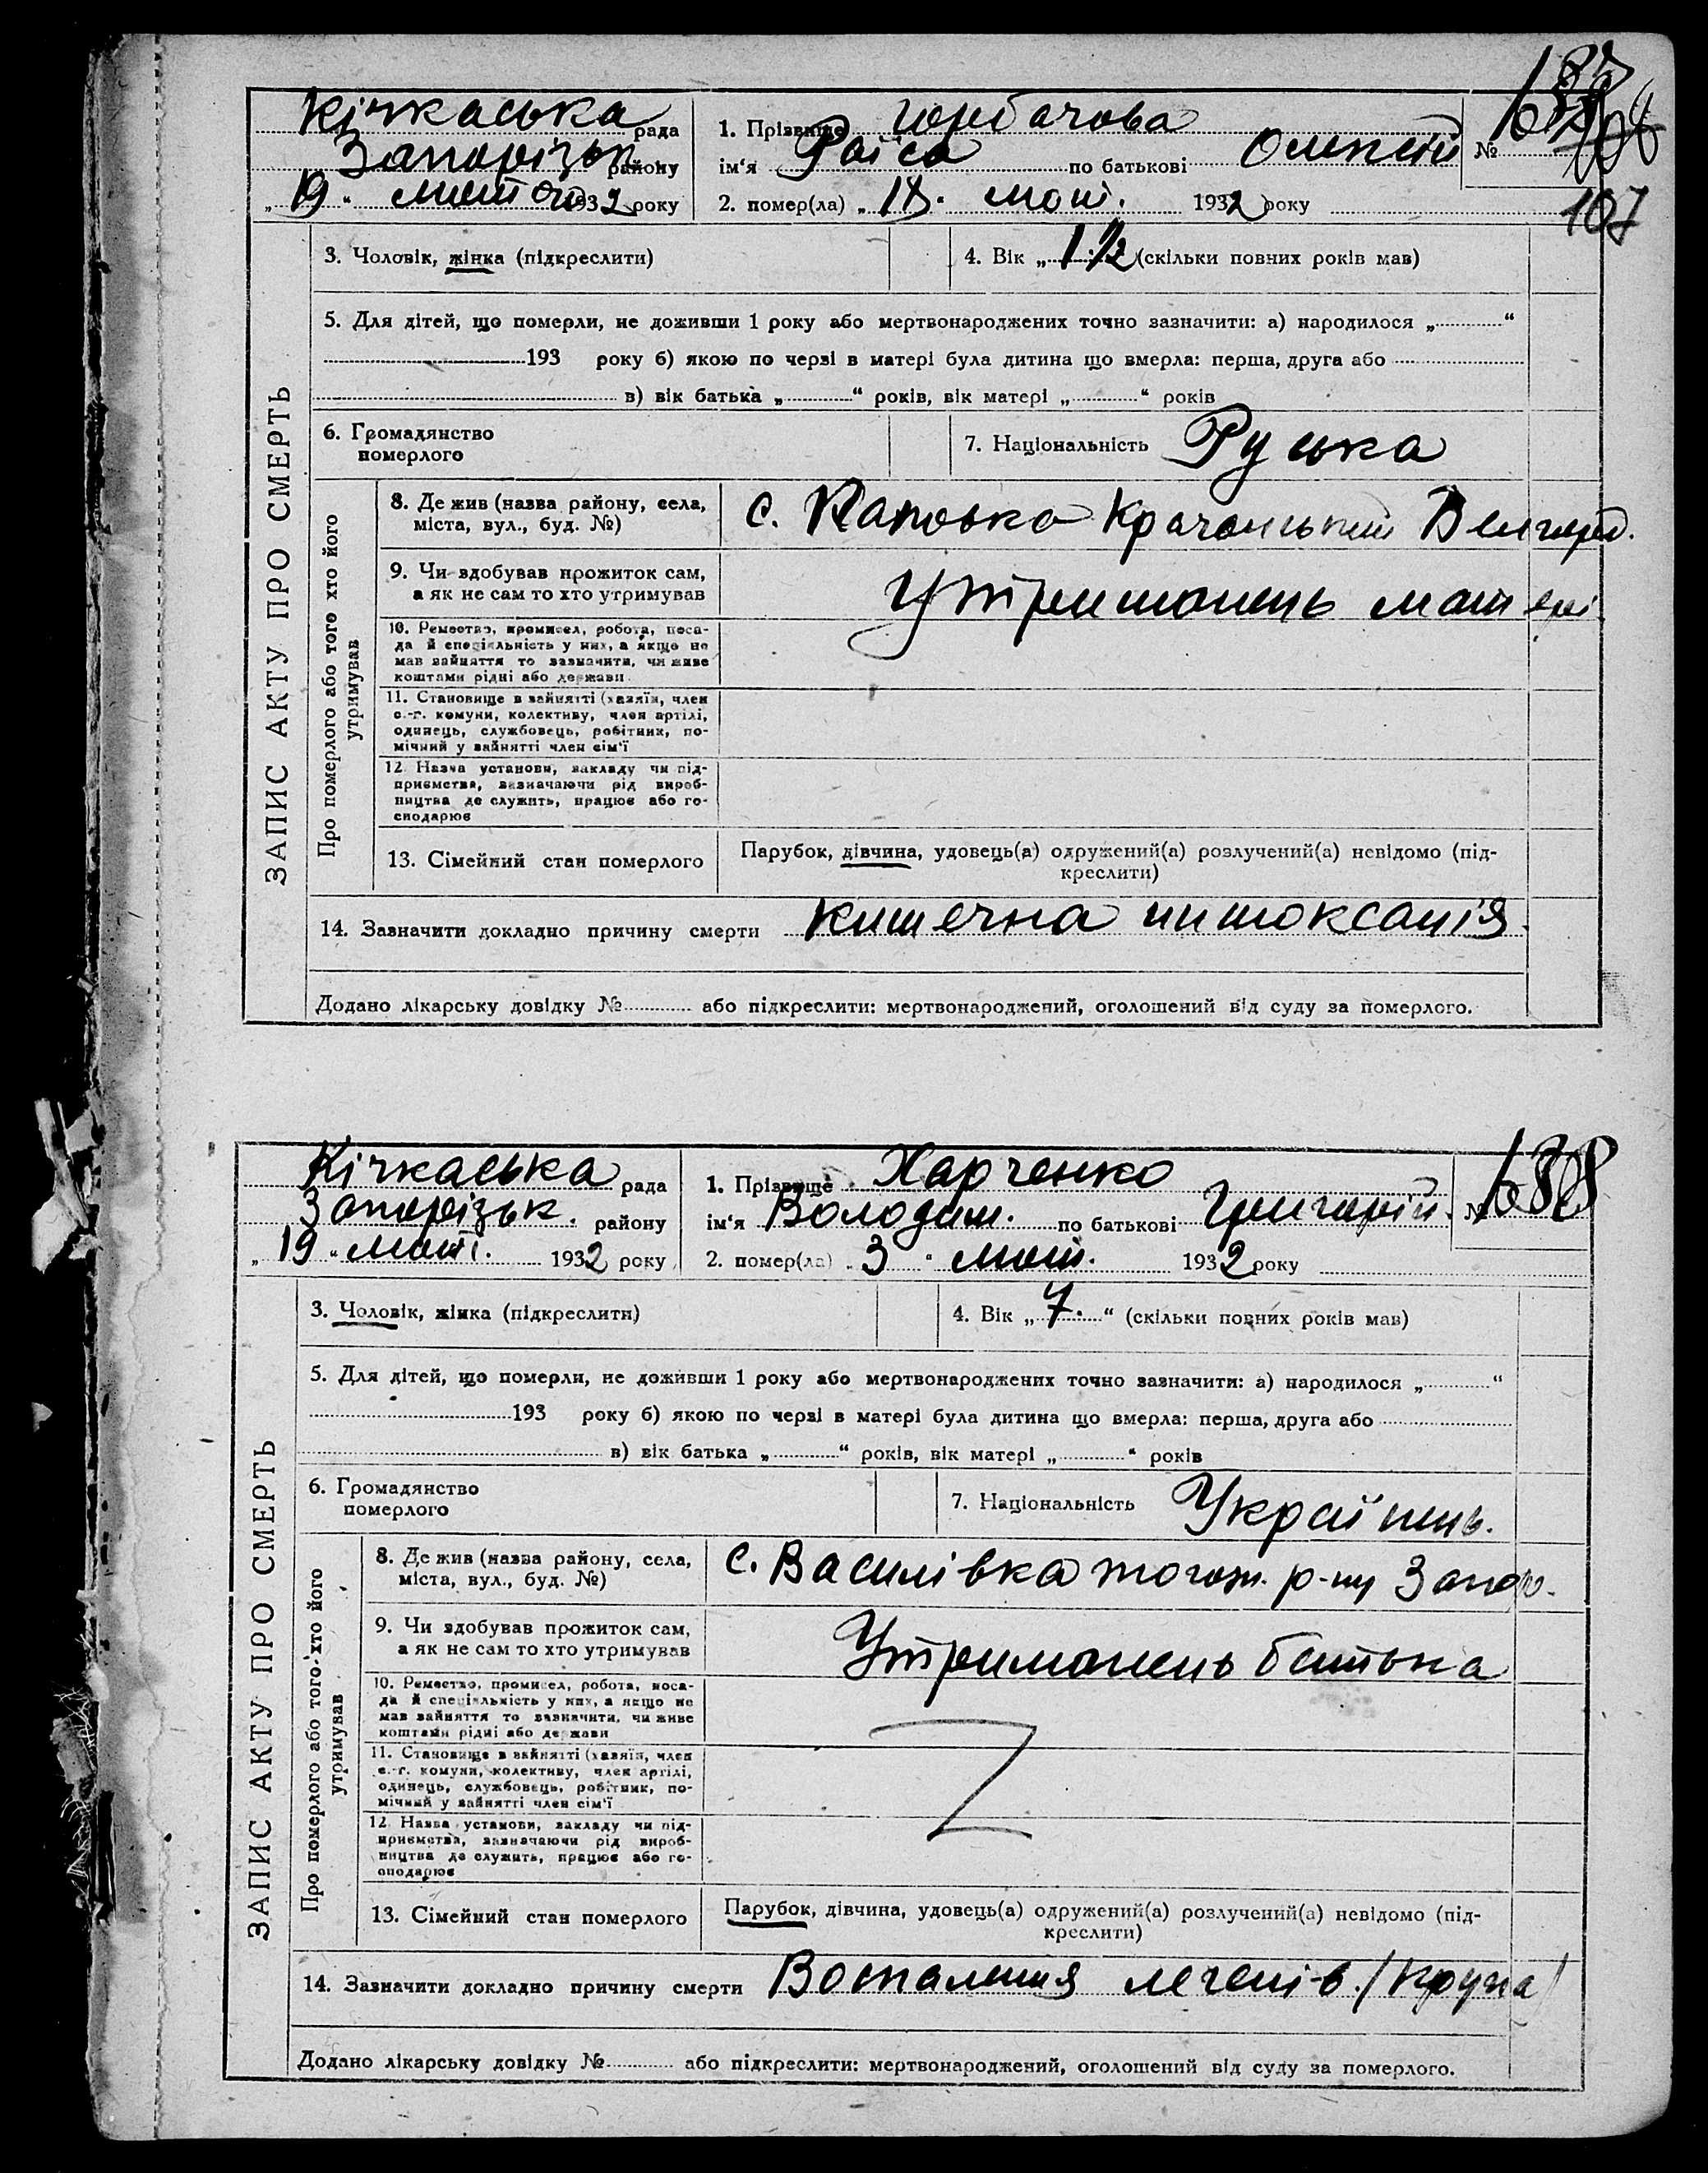 Кічкаська рада
Запорізьк. району
„19“ лютого 1932 року
1. Прізвище Горбачова
ім‘я Раїса по батькові Олексій №
2. помер(ла) „18“ лют. 1932 року
107
3. Чоловік, жінка (підкреслити)
4. Вік „1 1/2“ (скільки повних років мав)
5. Для дітей, що померли, не доживши 1 року або мертвонароджених точно зазначити: а) народилося „ “
193 року б) якою по черзі в матері була дитина що вмерла: перша, друга або
в) вік батька „ “ років, вік матері „ “ років
6. Громадянство
померлого
7. Національність Руська
ЗАПИС АКТУ ПРО СМЕРТЬ
Про померлого або того хто його
утримував
8. Де жив (назва району, села,
міста, вул., буд. №)
с.
9. Чи здобував прожиток сам,
а як не сам то хто утримував
Утриманець матері
10. Ремество, промисел, робота, поса-
да й спеціяльність у них, а якщо не
мав зайняття то зазначити, чи живе
коштами рідні або держави
11. Становище в зайнятті (хазяїн, член
с.-г. комуни, колективу, член артілі,
одинець, службовець, робітник, по-
мічний у зайнятті член сім‘ї
12. Назва установи, закладу чи під-
приємства, зазначаючи рід вироб-
ництва де служить, працює або го-
сподарює
13. Сімейний стан померлого
Парубок, дівчина, удовець(а) одружений(а) розлучений(а) невідомо (під-
креслити)
14. Зазначити докладно причину смерти Кишечна интоксація.
Додано лікарську довідку № або підкреслити: мертвонароджений, оголошений від суду за померлого.
Кічкаська рада
Запорізьк. району
„19“ лют. 1932 року
1. Прізвище Харченко
ім‘я Володим. по батькові Григорій. № 688
2. помер(ла) „3“ лют. 1932 року
3. Чоловік, жінка (підкреслити)
4. Вік „7.“ (скільки повних років мав)
5. Для дітей, що померли, не доживши 1 року або мертвонароджених точно зазначити: а) народилося „ “
193 року б) якою по черзі в матері була дитина що вмерла: перша, друга або
в) вік батька „ “ років, вік матері „ “ років
6. Громадянство
померлого
7. Національність Українець.
ЗАПИС АКТУ ПРО СМЕРТЬ
Про померлого або того хто його
утримував
8. Де жив (назва району, села,
міста, вул., буд. №)
с. Василівка тогож. р-ну Запор.
9. Чи здобував прожиток сам,
а як не сам то хто утримував
Утриманець батька
10. Ремество, промисел, робота, поса-
да й спеціяльність у них, а якщо не
мав зайняття то зазначити, чи живе
коштами рідні або держави
11. Становище в зайнятті (хазяїн, член
с.-г. комуни, колективу, член артілі,
одинець, службовець, робітник, по-
мічний у зайнятті член сім‘ї
12. Назва установи, закладу чи під-
приємства, зазначаючи рід вироб-
ництва де служить, працює або го-
сподарює
13. Сімейний стан померлого
Парубок, дівчина, удовець(а) одружений(а) розлучений(а) невідомо (під-
креслити)
14. Зазначити докладно причину смерти Воспалення легенів. /Крупа/
Додано лікарську довідку № або підкреслити: мертвонароджений, оголошений від суду за померлого.